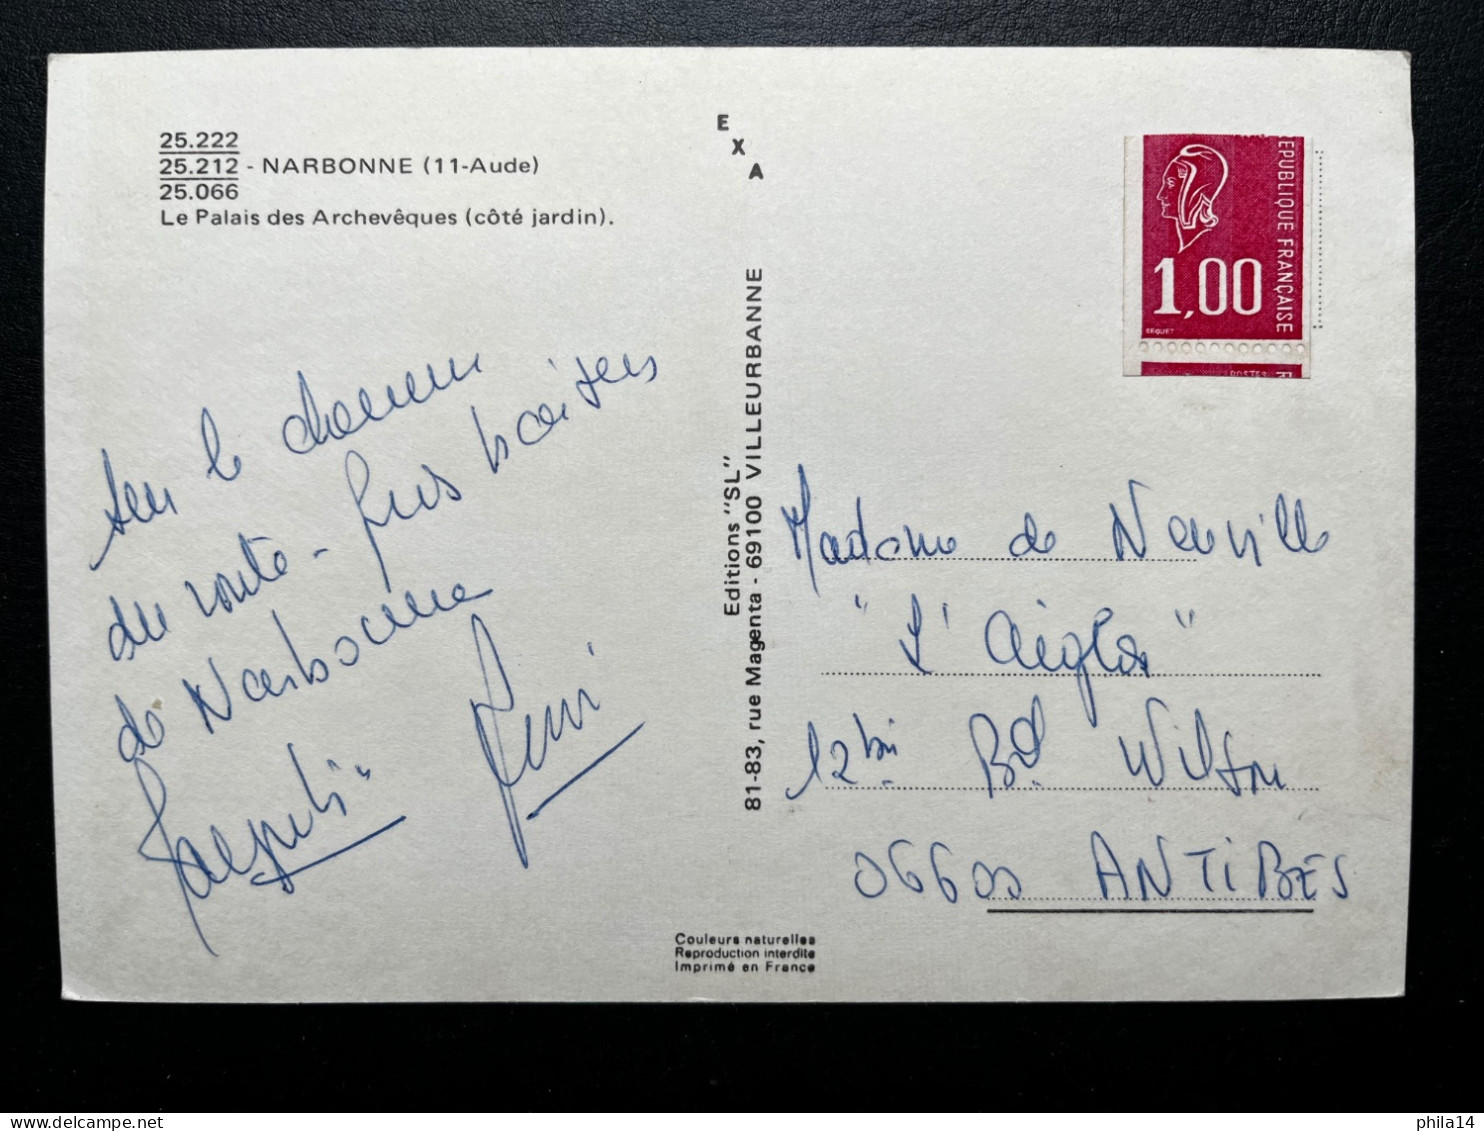 25.222
25.212 - NARBONNE (11-Aude)
25.066
Le Palais des Archevêques (côté jardin).
E
X
A
Editions "SL"
81-83, rue Magenta - 69100 VILLEURBANNE
EPUBLIQUE FRANÇAISE
1,00
BEQUET
POSTES
R
sur le chemin
du route - gros baisers
de Narbonne
Jacqueline
Madame de Neuville
"L'Aiglon"
12bis Bd Wilson
06600 ANTIBES
Couleurs naturelles
Reproduction interdite
Imprimé en France
phila14